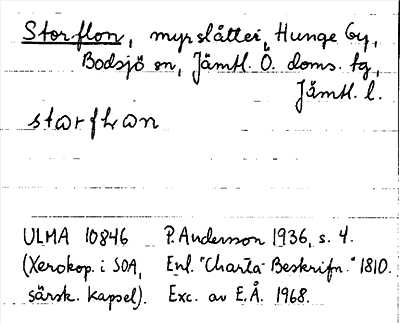 Storflon, myrslåtter, Hunge by,
Bodsjö sn, Jämtl. Ö. doms. tg,
Jämtl. l.
ULMA 10846 P. Andersson 1936, s. 4.
(Xerokop. i SOA, Enl. "Charta-Beskrifn." 1810.
särsk. kapsel). Exc. av E.Å. 1968.